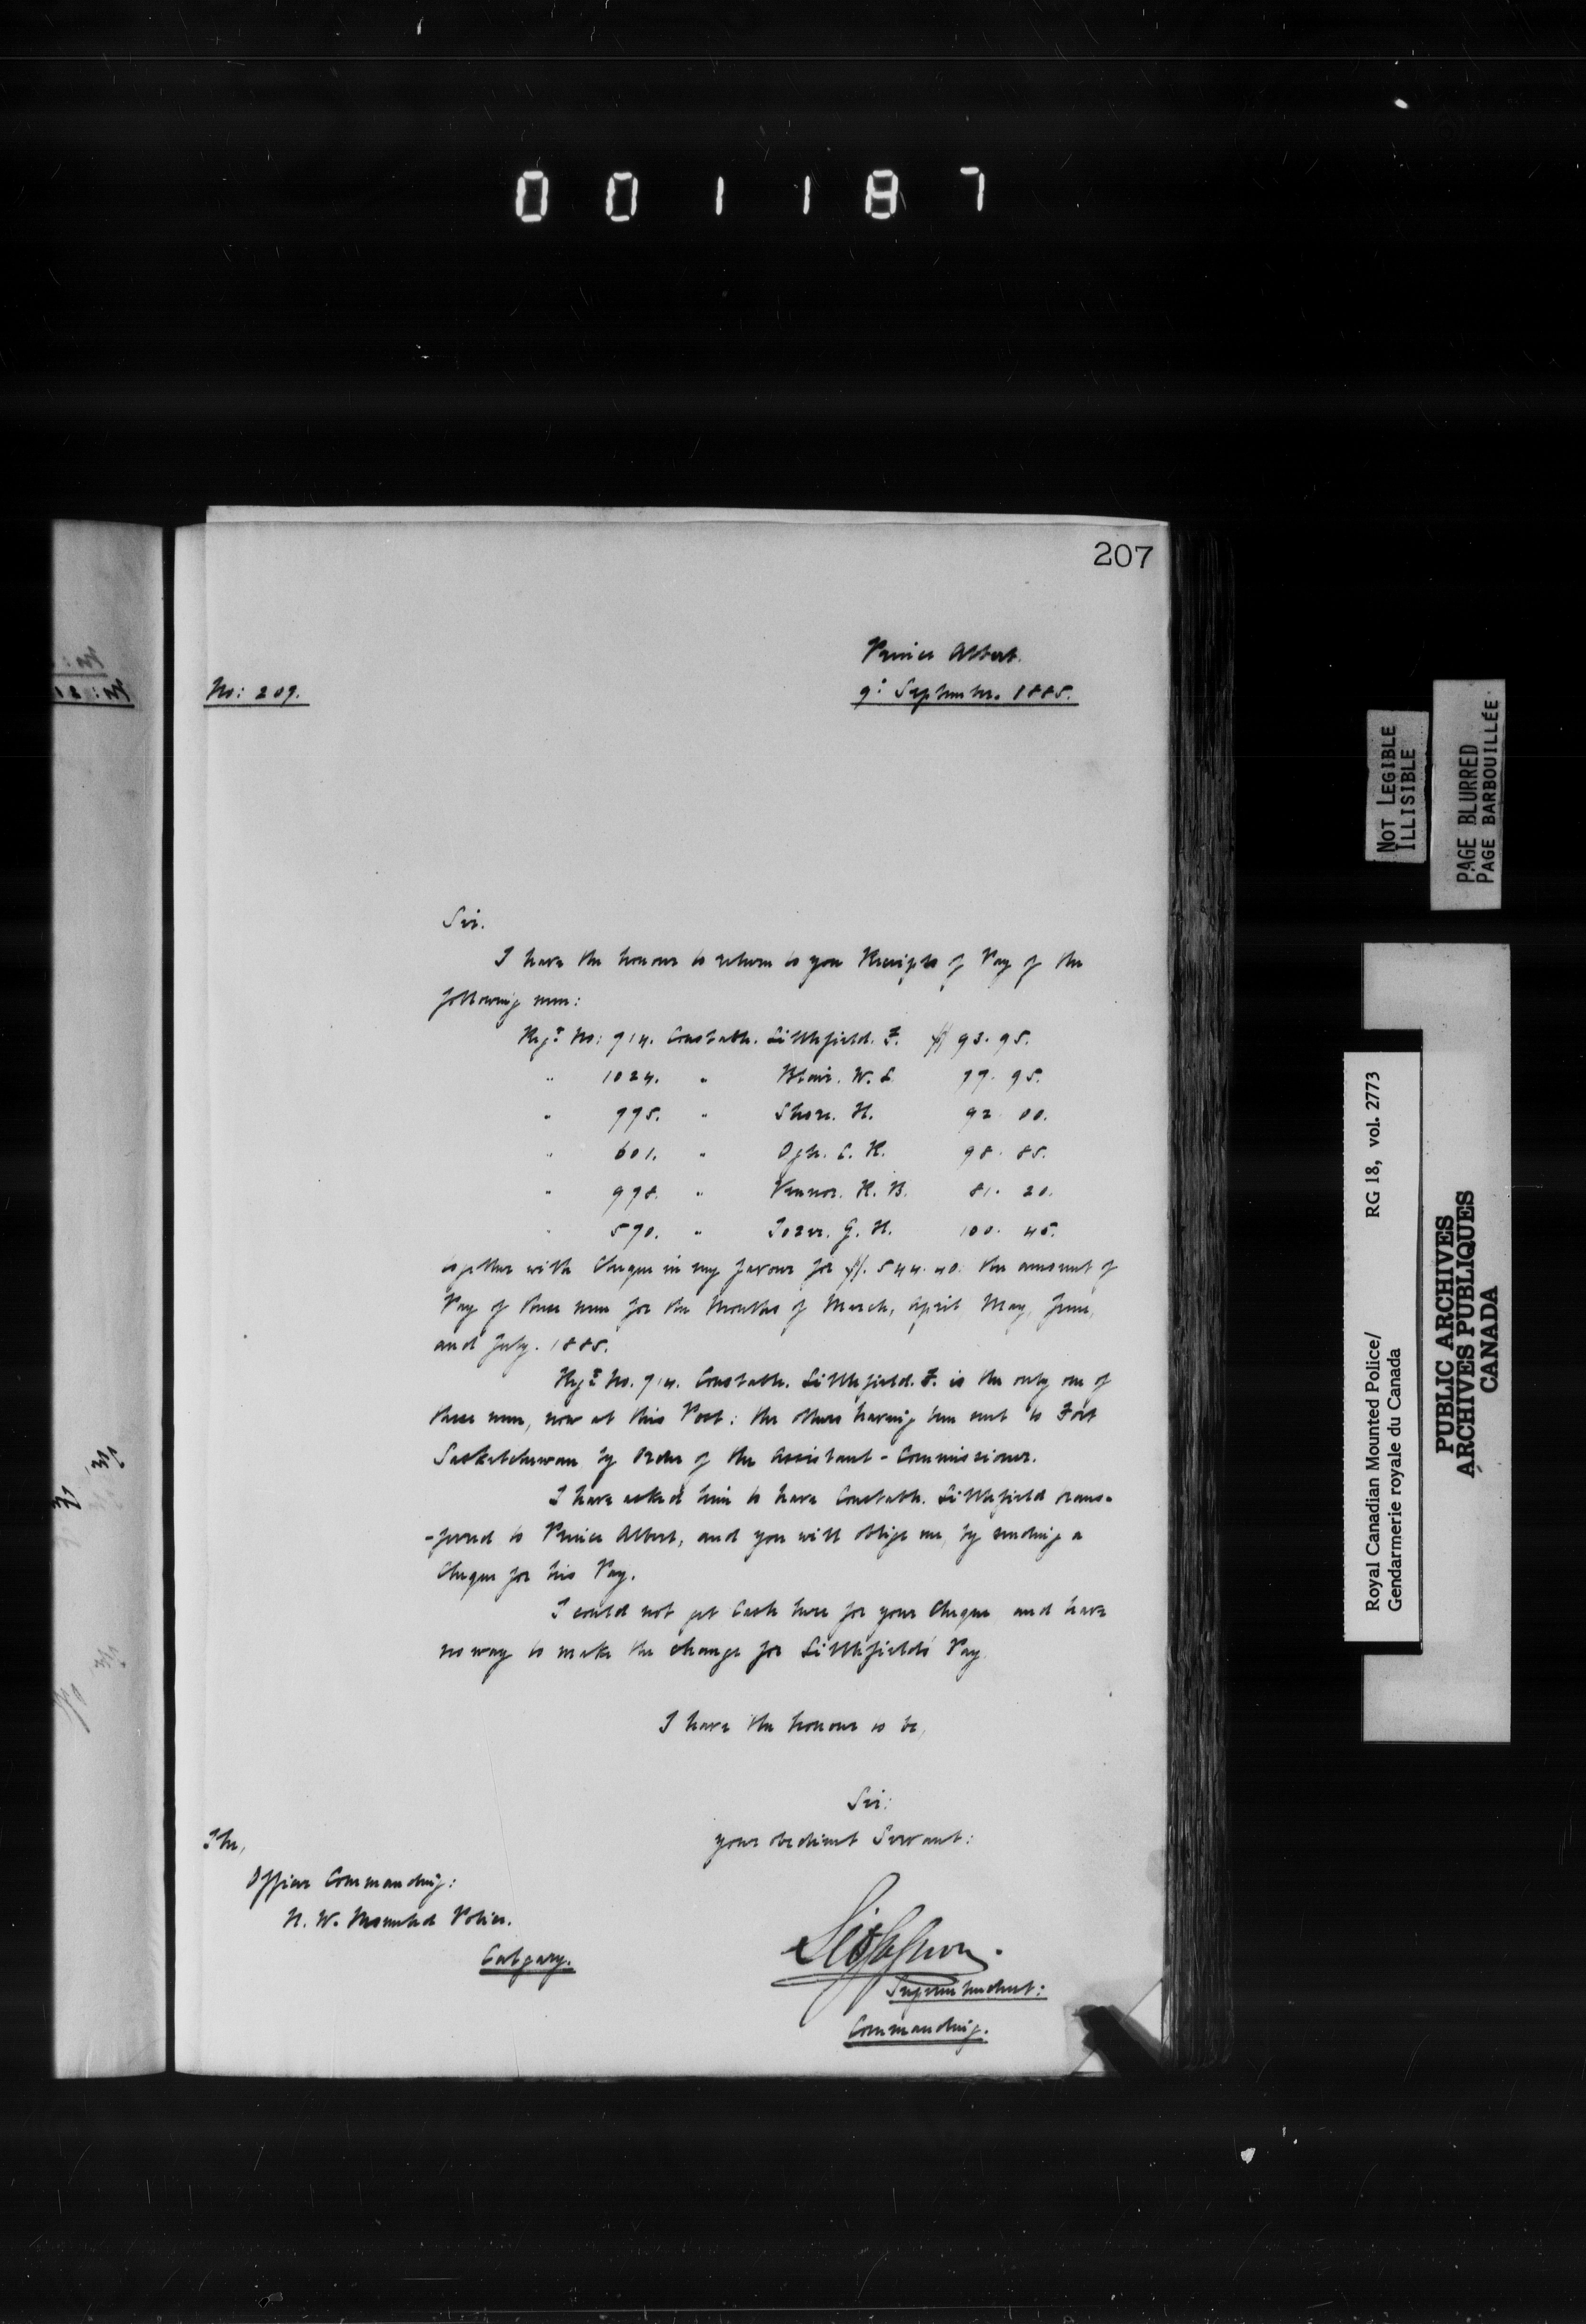 001187
207
Prince Albert.
No: 209.
9: September. 1885.
Sir.
I have the honour to return to you Receipts of Pay of the
following men:
Regt No: 914. Constable. Littlefield. F. $ 93. 95.
" 1024. " Blair. W. L. 77. 95.
" 995. " Shore. H. 92. 00.
" 601. " C. H. 98. 85.
" 998. " H. B. 81. 20.
" 590. " Tozer. G. H. 100. 45.
together with Cheque in my favour for $. 544. 40. the amount of
Pay of these men for the Months of March, April, May, June,
and July. 1885.
Regt No. 914. Constable. Littlefield. F. is the only one of
these men, now at this Post: the others having been sent to Fort
Saskatchewan by Order of the Assistant - Commissioner.
I have asked him to have Constable. Littlefield trans-
-fered to Prince Albert, and you will oblige me, by sending a
Cheque for his Pay.
I could not get Cash here for your Cheque and have
no way to make the change for Littlefield's Pay.
I have the honour to be,
Sir:
your obedient Servant:
The,
Officer Commanding:
N. W. Mounted Police.
Calgary.
Superintendent:
Commanding.
NOT LEGIBLE
ILLISIBLE
PAGE BLURRED
PAGE BARBOUILLÉE
Royal Canadian Mounted Police/ RG 18, vol. 2773
Gendarmerie royale du Canada
PUBLIC ARCHIVES
ARCHIVES PUBLIQUES
CANADA